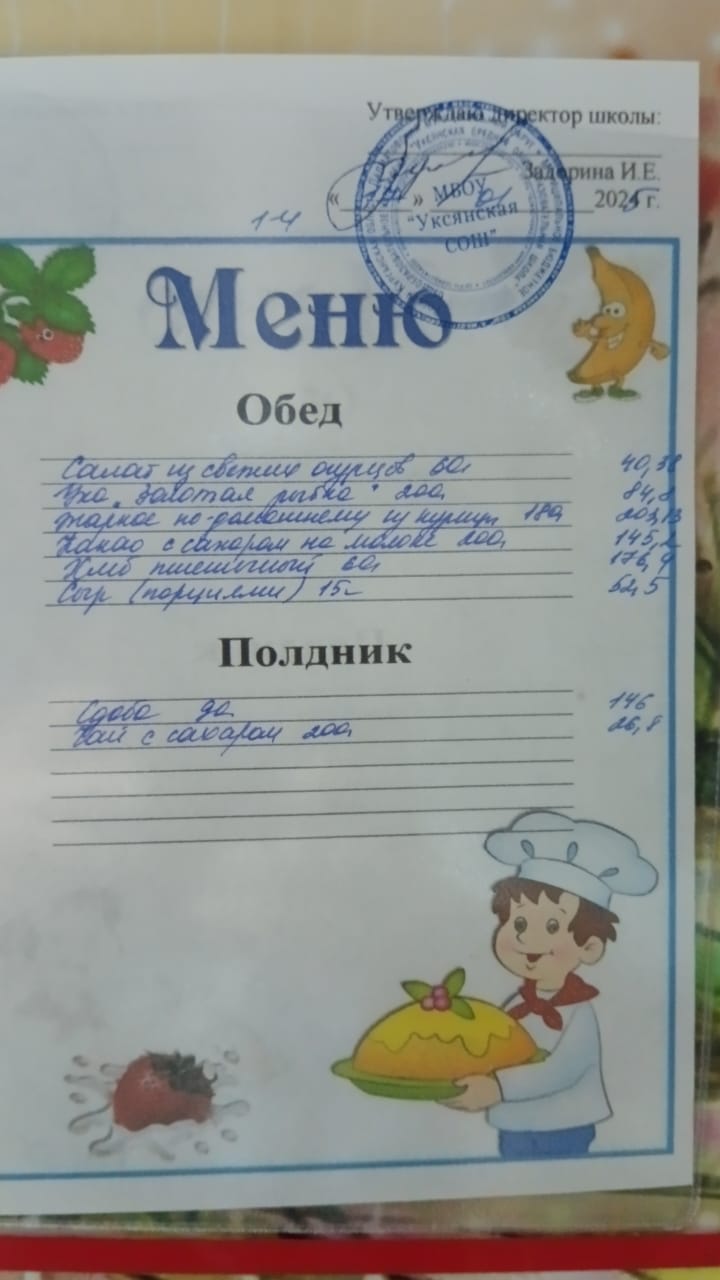 Утверждаю директор школы:
Задорина И.Е.
« » 01 2025 г.
МБОУ
"Уксянская
СОШ"
1-4
Меню
Обед
Салат из свежих огурцов 60г 40,38
Уха "Золотая рыбка" 200г 84,8
Жаркое по-домашнему из курицы 180г 203,13
Какао с сахаром на молоке 200г 145,2
Хлеб пшеничный 60г 176,4
Сыр (порциями) 15г 52,5
Полдник
Сдоба 146
Чай с сахаром 200г 26,8